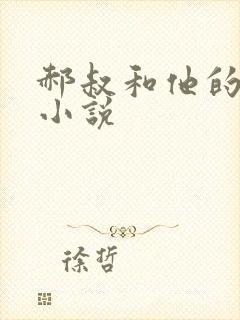 郝叔和他的
小说
徐哲